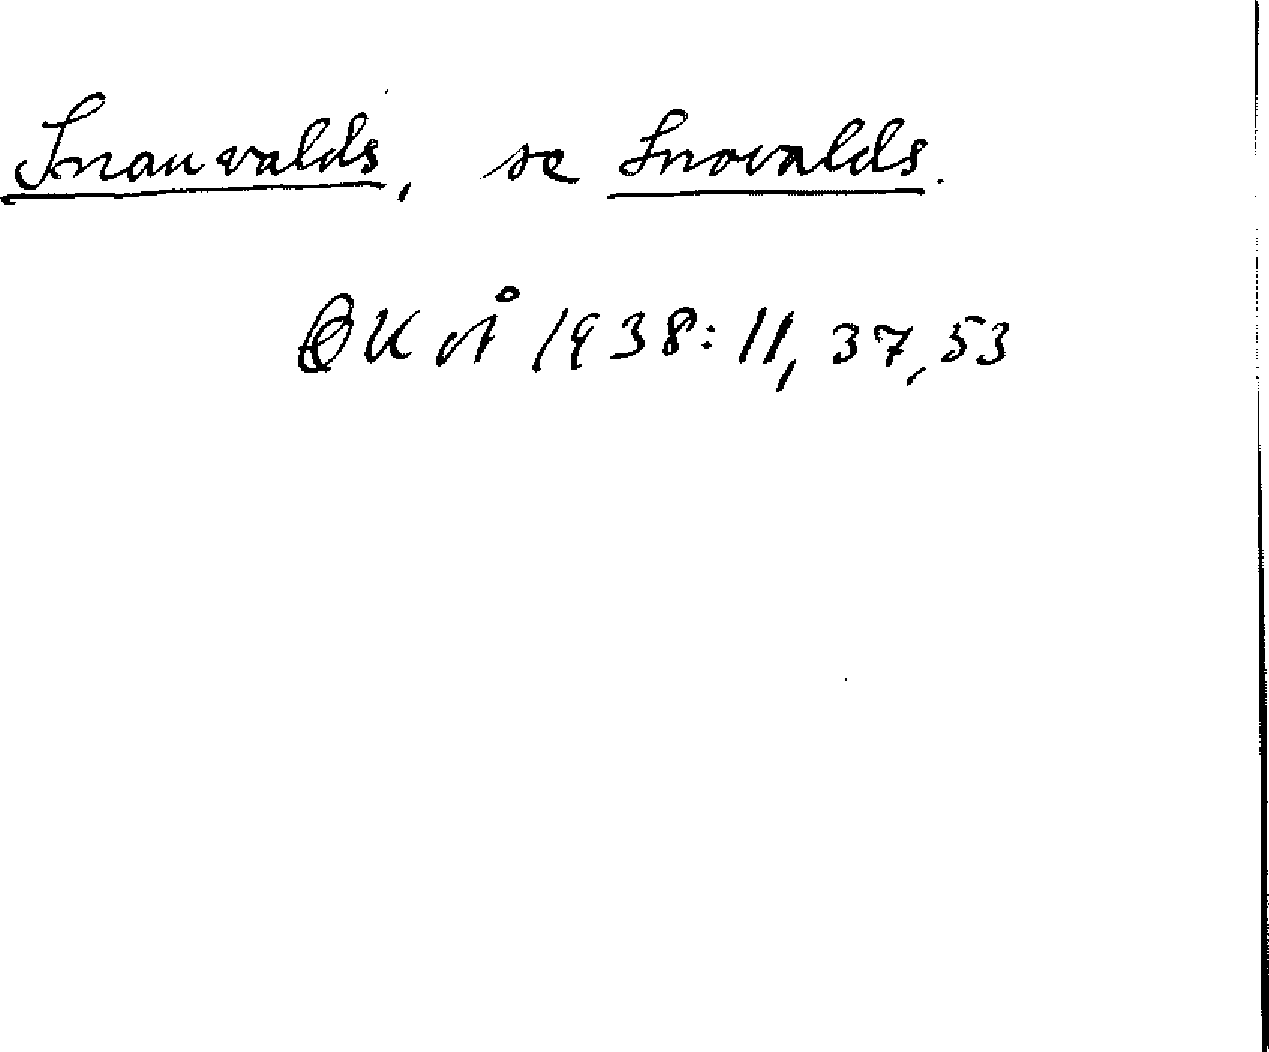 Snauvalds, se Snovalds.
BKÅ 1938: 11, 37, 53